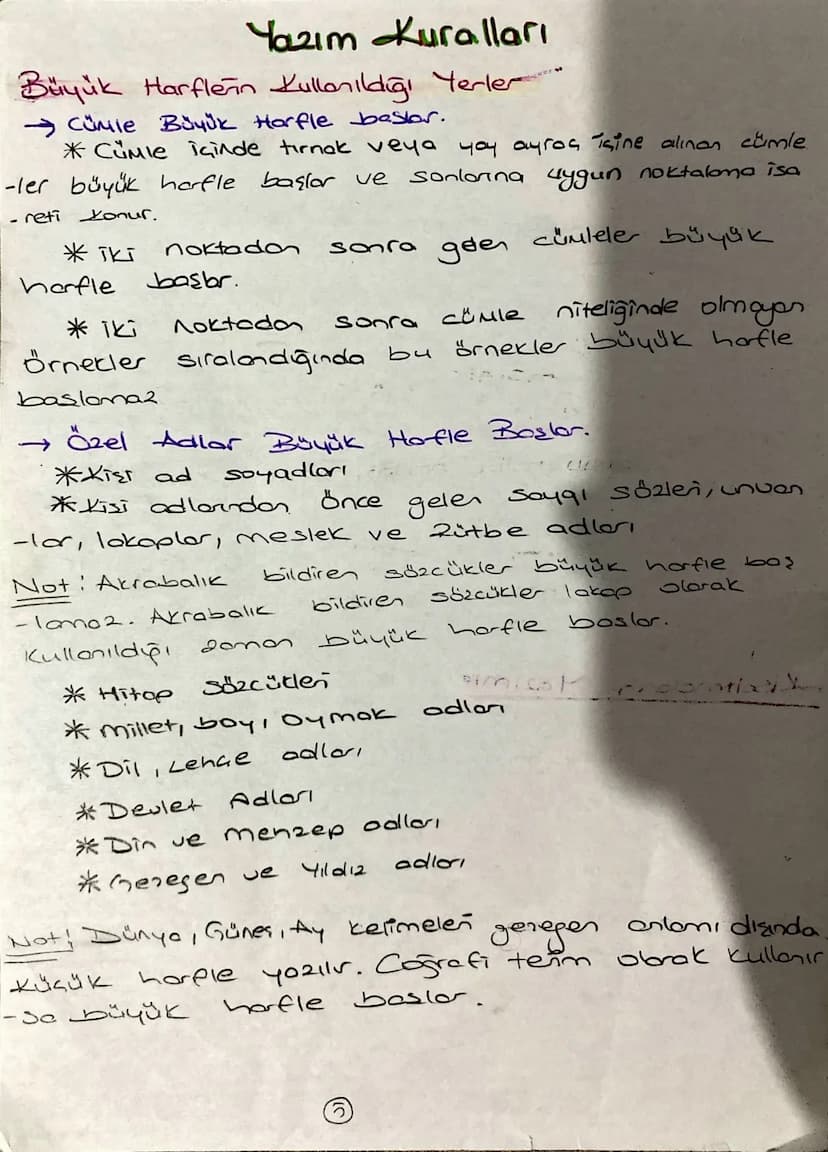 Yazım Kuralları
Büyük Harflerin Kullanıldığı Yerler
→ Cümle Büyük Harfle başlar.
* Cümle içinde tırnak veya yay ayraç içine alınan cümle
-ler büyük harfle başlar ve sonlarına uygun noktalama işa
-reti konur.
* iki noktadan sonra gelen cümleler büyük
harfle başlar.
* iki noktadan sonra cümle niteliğinde olmayan
örnekler sıralandığında bu örnekler büyük harfle
başlamaz
→ Özel Adlar Büyük Harfle Başlar.
* Kişi ad soyadları
* Kişi adlarından önce gelen saygı sözleri, unvan
-lar, lakaplar, meslek ve Rütbe adları
Not: Akrabalık bildiren sözcükler büyük harfle baş
-lamaz. Akrabalık bildiren sözcükler lakap olarak
kullanıldığı zaman büyük harfle başlar.
* Hitap sözcükleri
* Millet, boy, oymak adları
* Dil, Lehçe adları
* Devlet Adları
* Din ve menzep adları
* Gezegen ve Yıldız adları
Not: Dünya, Güneş, Ay kelimeleri gezegen anlamı dışında
küçük harfle yazılır. Coğrafi terim olarak kullanır
-sa büyük harfle başlar.